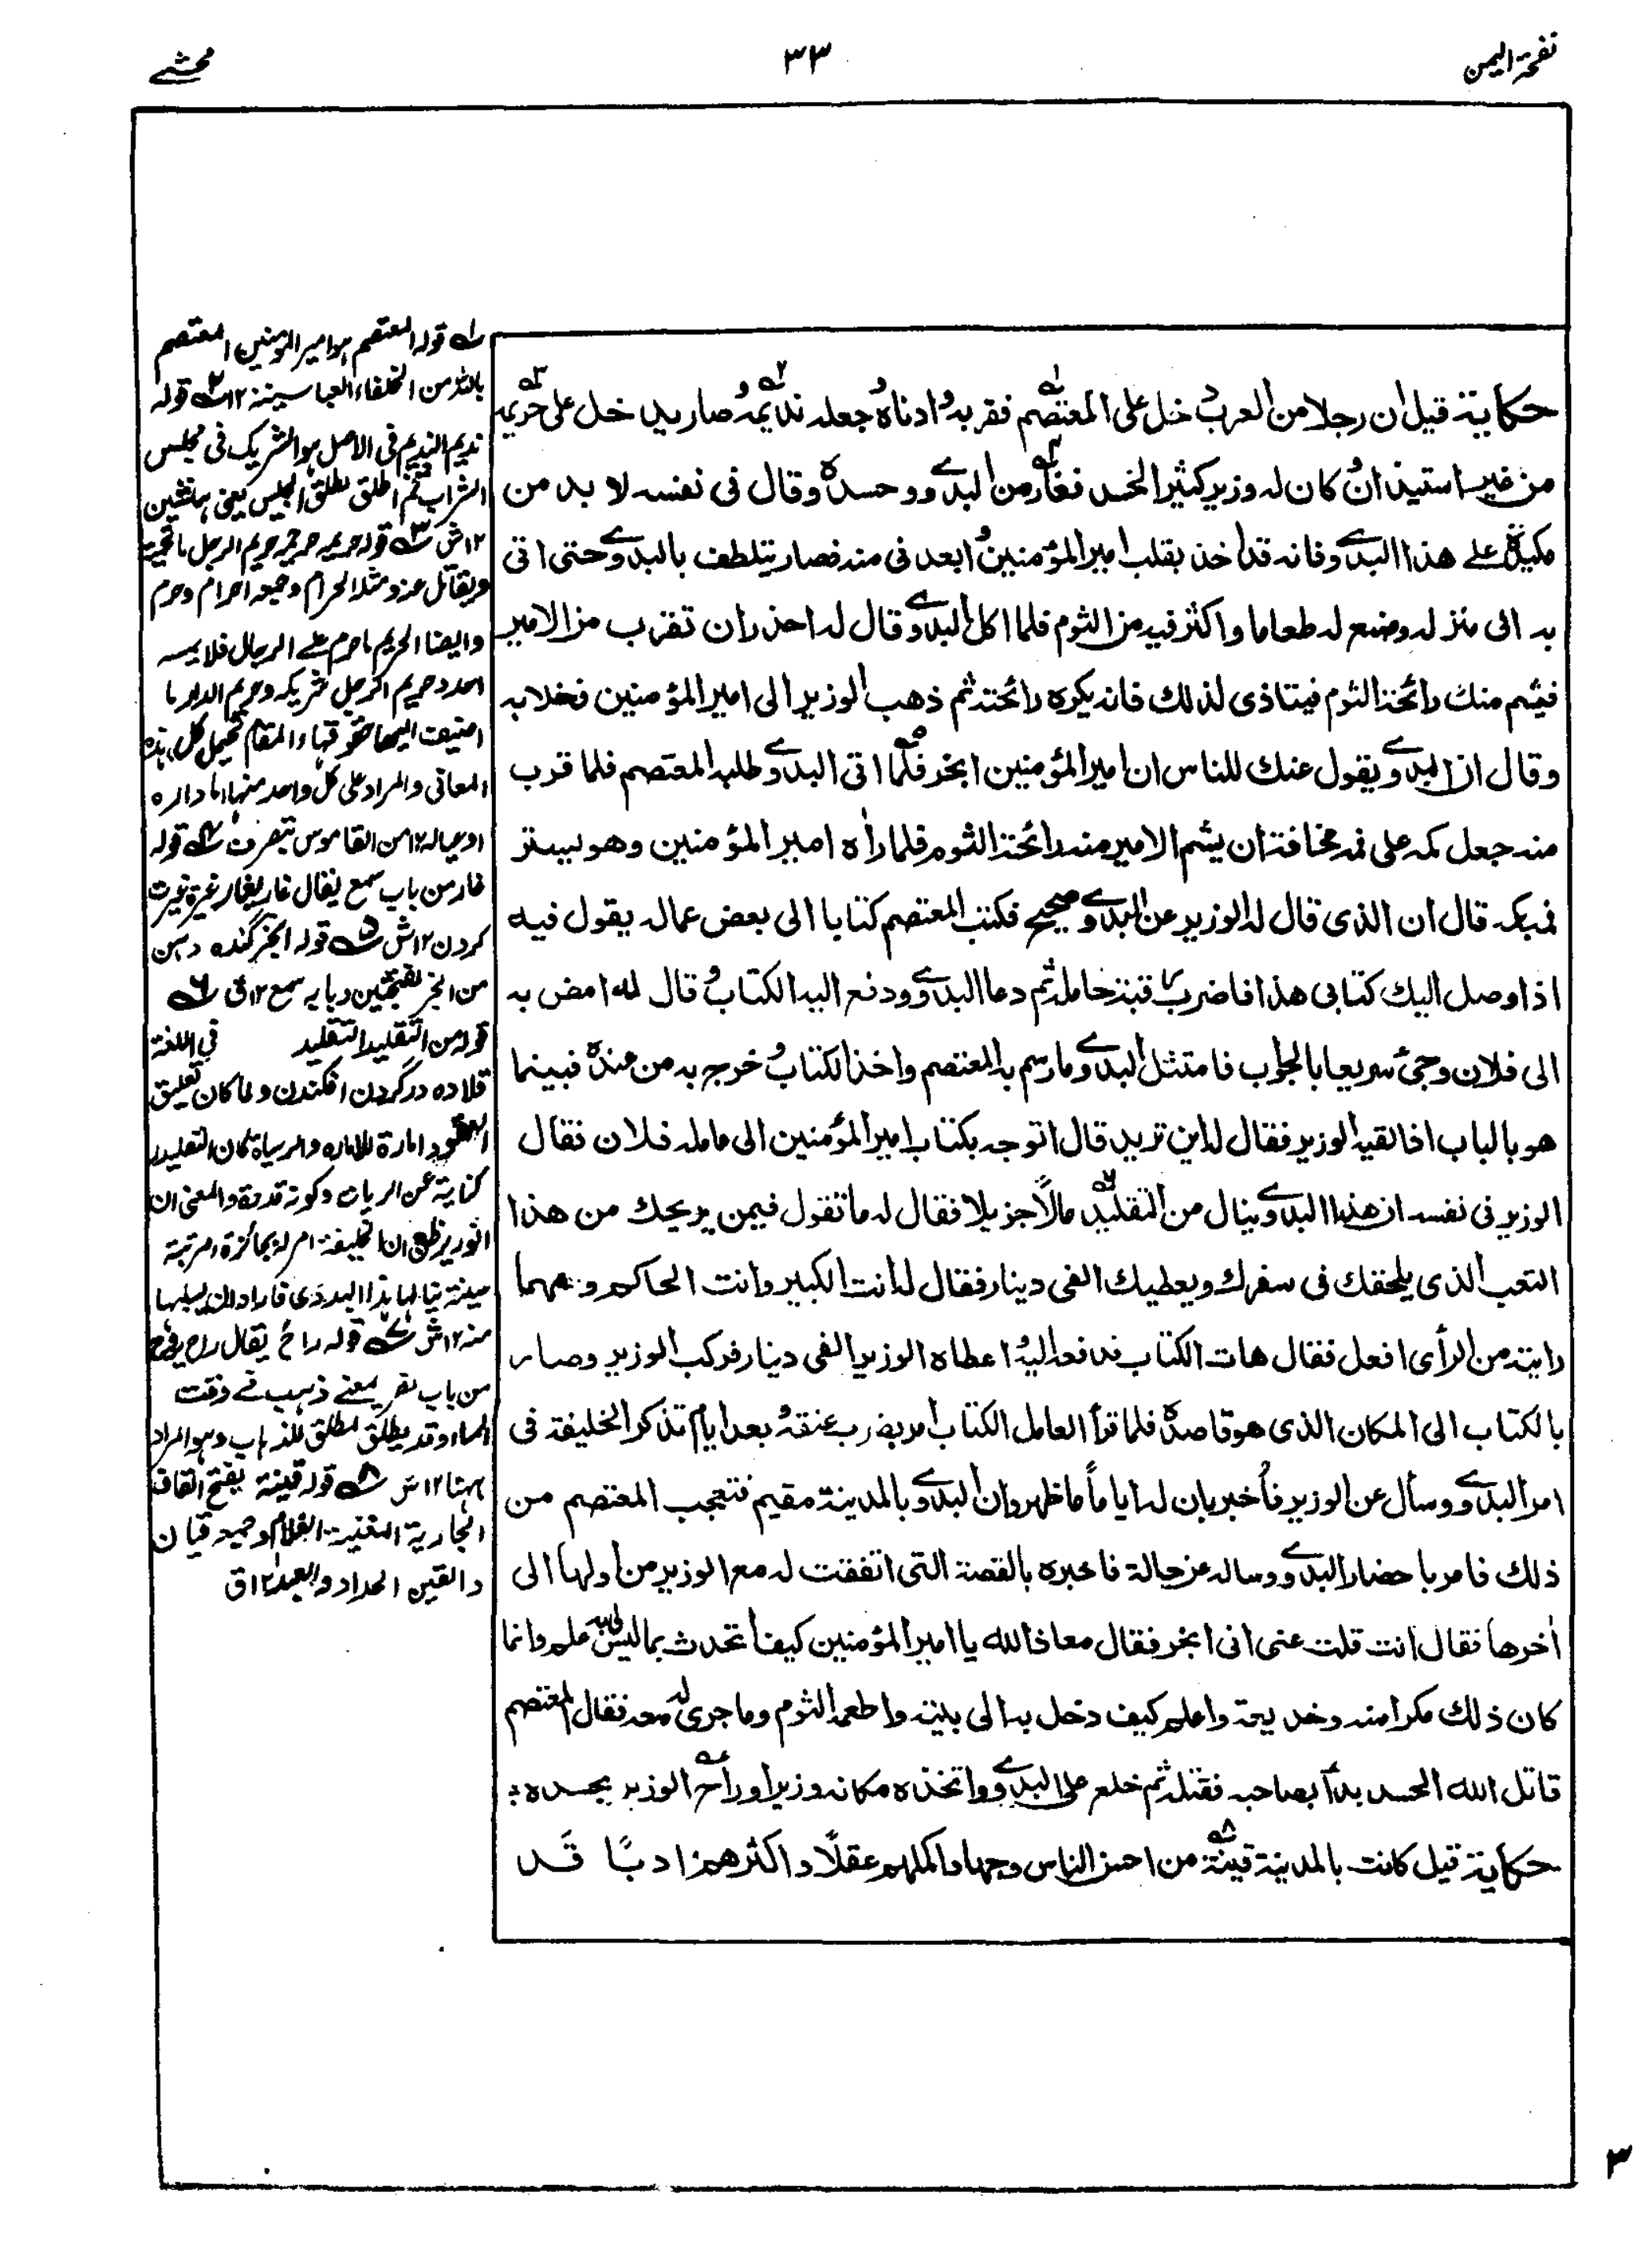 نفحة اليمن
٣٣
محشے
حكاية قيل ان رجلا من العرب دخل على المعتصم فقربه وادناه وجعله نديمه وصار يدخل على حريمه
من غير استيذان وكان له وزير كثير الحسد فغار من البدوي وحسده وقال فى نفسه لا بد من
مكيدة على هذا البدوي فانه قد اخذ بقلب امير المؤمنين وابعدنى منه فصار يتلطف بالبدوي حتى اتى
به الى منزله وضع له طعاما واكثر فيه من الثوم فلما اكل البدوي قال له احذر ان تقرب من الامير
فيشم منك رائحة الثوم فيتاذى لذلك فانه يكره رائحته ثم ذهب الوزير الى امير المؤمنين فخلا به
وقال ان البدوي يقول عنك للناس ان امير المؤمنين ابخر فلما اتى البدوي وطلبه المعتصم فلما قرب
منه جعل كمه على فمه مخافة ان يشم الامير منه رائحة الثوم فلما رأه امير المؤمنين وهو يستر
فمه بكمه قال ان الذى قال له الوزير عن البدوي صحيح فكتب المعتصم كتابا الى بعض عماله يقول فيه
اذا وصل اليك كتابى هذا فاضرب رقبة حامله ثم دعا البدوي ودفع اليه الكتاب وقال له امض به
الى فلان وجئ سريعا بالجواب فامتثل البدوي ما رسم به المعتصم واخذ الكتاب وخرج به من عنده فبينما
هو بالباب اذ لقيه الوزير فقال له اين تريد قال اتوجه بكتاب امير المؤمنين الى عامله فلان فقال
الوزير فى نفسه ان هذا البدوي ينال من التقليد مالا جزيلا فقال له ما تقول فيمن يريحك من هذا
التعب الذى يلحقك فى سفرك ويعطيك الفى دينار فقال له انت الكبير وانت الحاكم ومهما
رايته من الرأى افعل فقال هات الكتاب فدفعه اليه واعطاه الوزير الفى دينار فركب الوزير وصار
بالكتاب الى المكان الذى هو قاصده فلما قرأ العامل الكتاب امر بضرب عنقه وبعد ايام تذكر الخليفة فى
امر البدوي وسأل عن الوزير فأخبر بان له اياماً ما ظهر وان البدوي بالمدينة مقيم فتعجب المعتصم من
ذلك فامر باحضار البدوي وساله عن حالة فاخبره بالقصة التى اتفقت له مع الوزير من أولها الى
أخرها فقال انت قلت عنى انى ابخر فقال معاذ الله يا امير المؤمنين كيف أتحدث بما ليس لى به علم وانما
كان ذلك مكرا منه وخديعة واعلمه كيف دخل به الى بيته واطعمه الثوم وما جرى له معه فقال المعتصم
قاتل الله الحسد بدأ بصاحبه فقتله ثم خلع على البدوي واتخذه مكانه وزيرا وراح الوزير بحسده
حكاية قيل كانت بالمدينة قينة من احسن الناس وجها واكملهم عقلا واكثرهم ادبا قد
١ قوله المعتصم هو امير المومنين المعتصم
بالله من الخلفاء العباسية ١٢ ٢ قوله
نديم النديم فى الاصل هو الشريك فى مجلس
الشراب ثم اطلق الجليس يعنى ہمنشين
١٢ش ٣ قوله حريمه حريم الرجل ما
ويقاتل عنه و الحرام وجمعه احرام وحرم
وايضا الحريم ما حرم على الرجال فلا يمسه
احد وحريم الرجل شريكه وحريم الدار ما
اضيف اليها والمقام يحتمل كل هذه
المعانى والمراد على كل واحد منها داره
او عياله ١٢ من القاموس بتصرف ٤ قوله
غار من باب سمع يقال غار يغار غيرة غيرت
كردن ١٢ش ٥ قوله ابخر گنده دہن
من البخر بفتحتين وبابه سمع ١٢ق ٦
قوله من التقليد التقليد فى اللغة
قلاده در گردن افكندن ولما كان تعليق
امارة كان التقليد
كناية عن والمعنى ان
الوزير ظن ان الخليفة امر له بجائزة مرتبة
معينة ينالها هذا البدوى فاراد ان يسلبها
منه ١٢ش ٧ قوله راح يقال راح يروح
من باب نصر بمعنى ذهب فى وقت
المساء وقد يطلق لمطلق الذهاب وهو المراد
ہهنا ١٢ش ٨ قوله قينة بفتح القاف
الجارية المغنية وجمعه قيان
والقين الحداد والعبد ١٢ق
٣